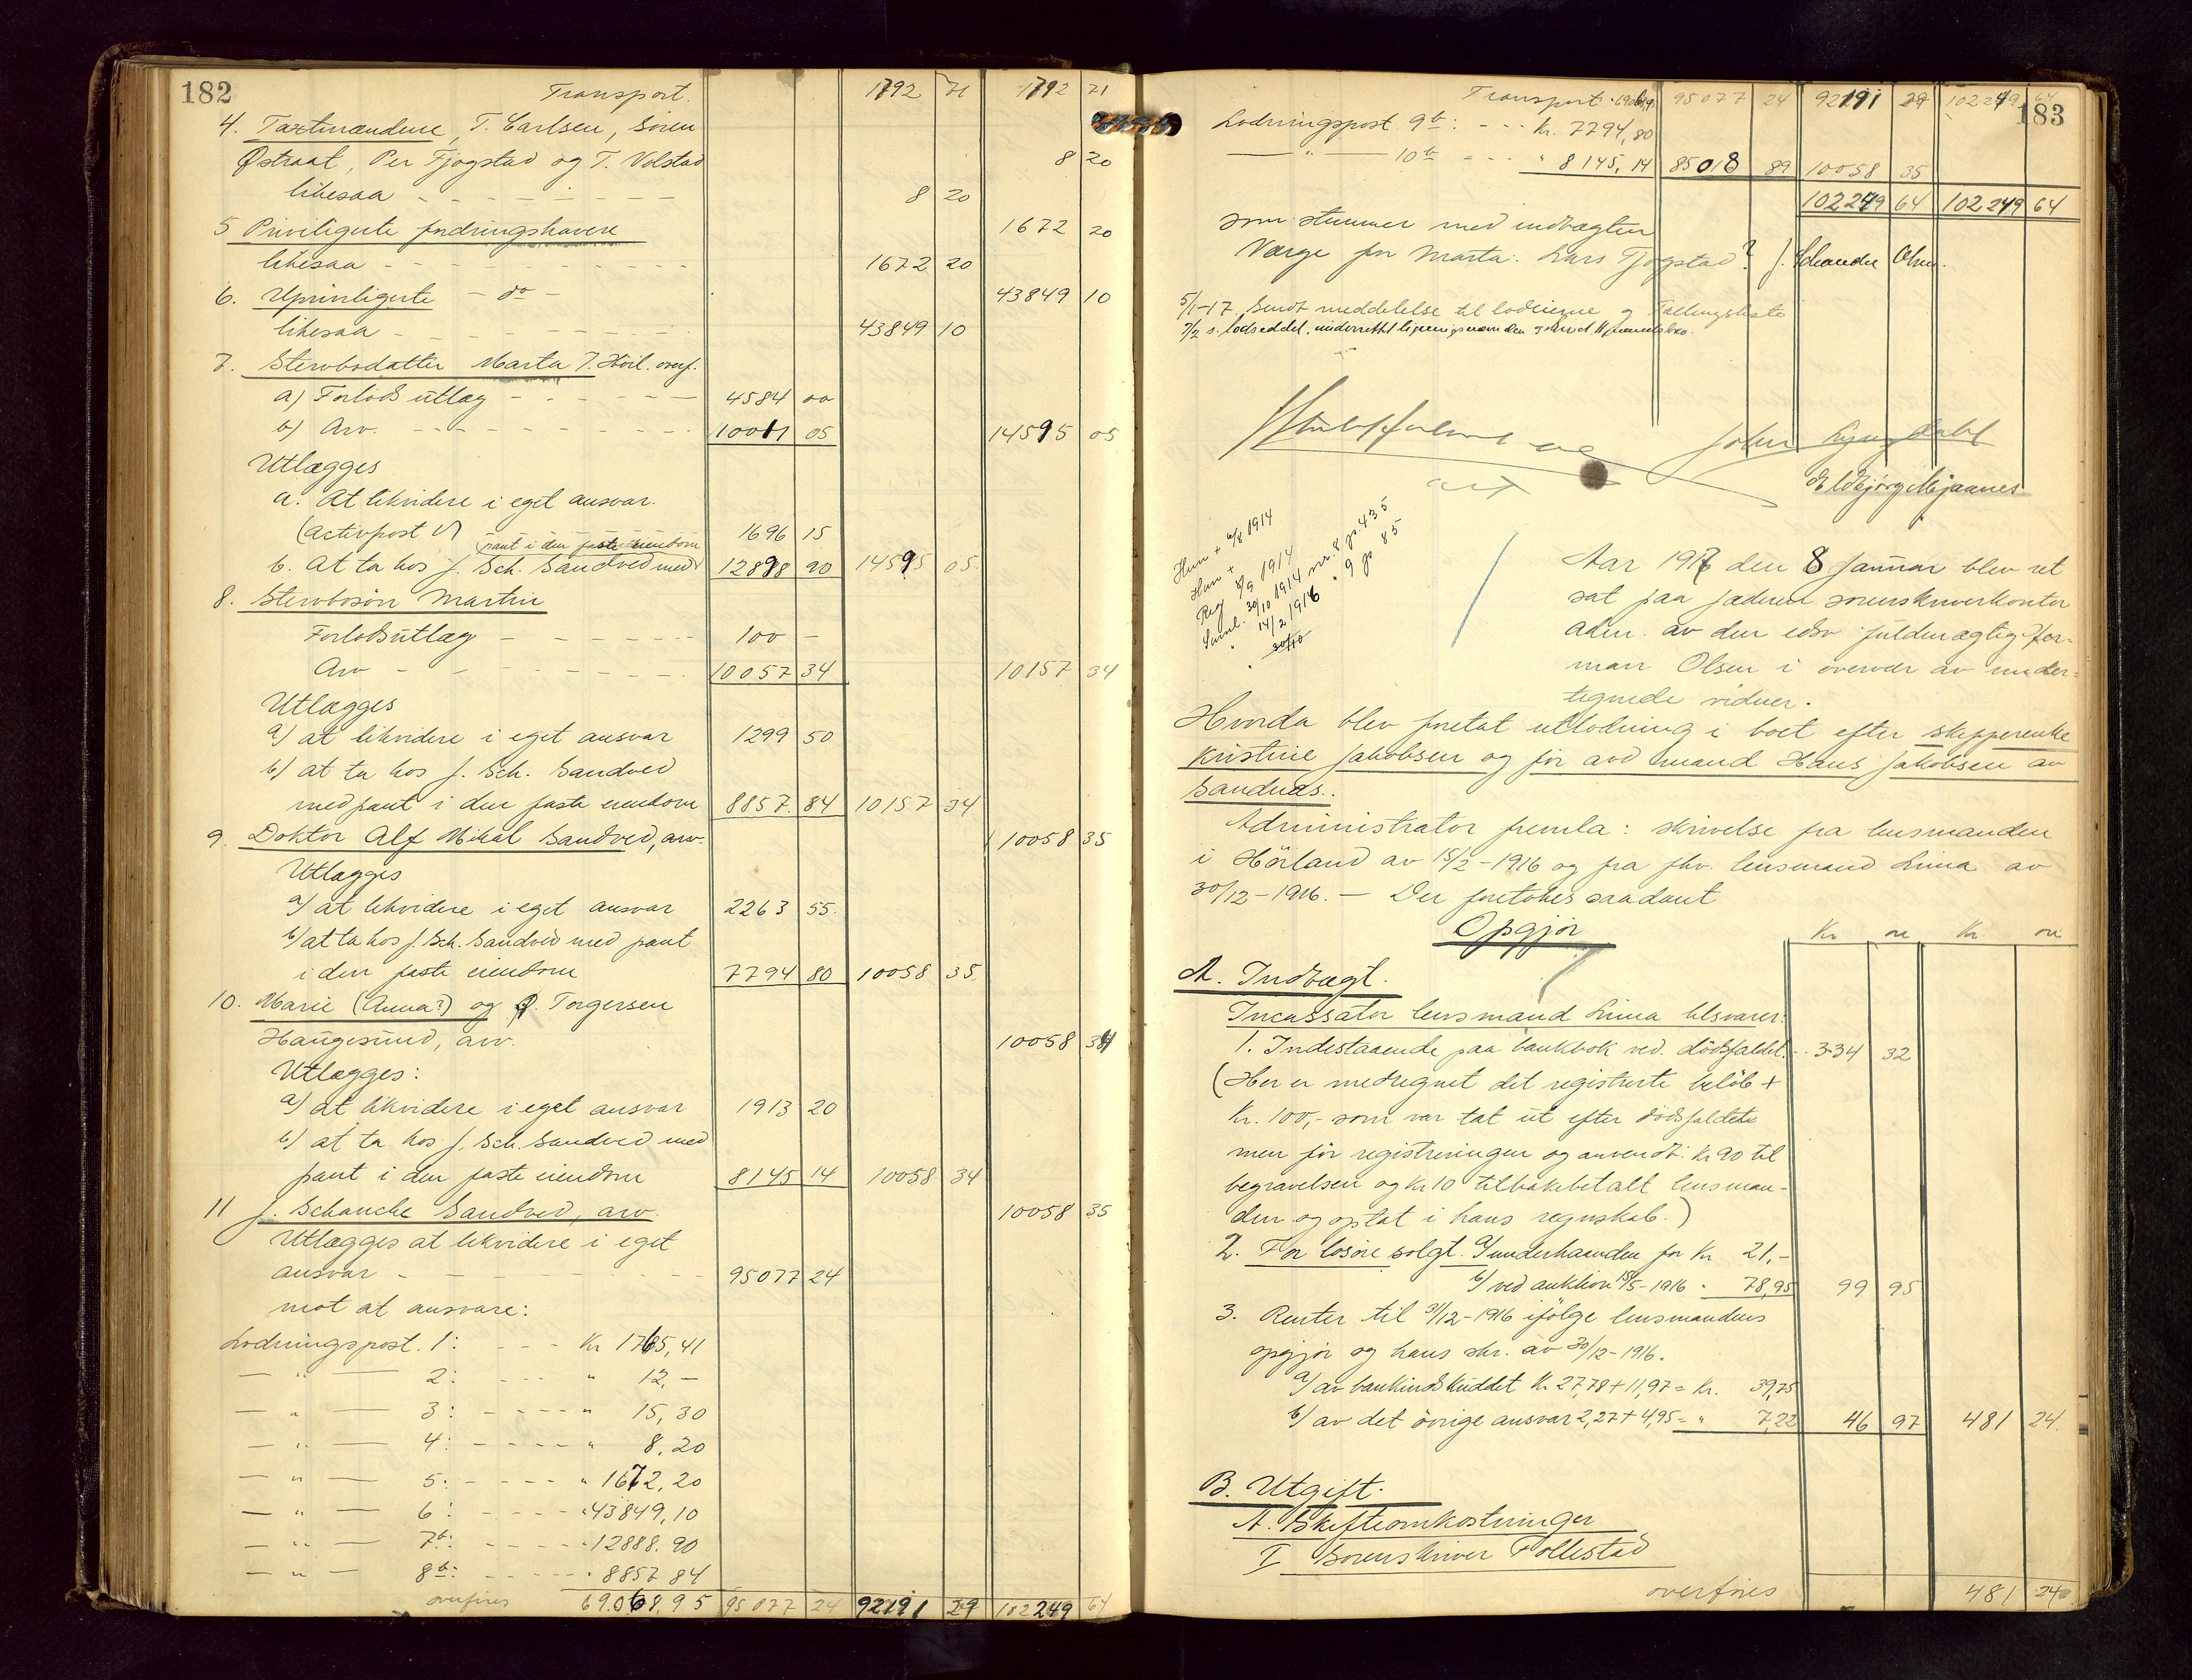 182
Transport. 1792 71 1792 71
4. Taxtmændene, T. Carlsen, Sören
Østraat, Per Fjogstad og T. Volstad 8 20
likesaa 8 20
5 Priviligerte fordringshavere 1672 20
likesaa 1672 20
6. Upriviligerte - do - 43849 10
likesaa 43849 10
7. Stervbodatter Marta
a) Forlods utlæg 4584 00
b) Arv. 10011 05 14595 05
Utlægges
a. At likvidere i eget ansvar.
(Activpost V) 1696 15
pant i den faste eiendom
b. At ta hos J. Sch. Sandved med 12898 90 14595 05
8. Stervbosön Martin
Forlodsutlæg 100 -
Arv 10057 34 10157 34
Utlægges
a) at likvidere i eget ansvar 1299 50
b) at ta hos J. Sch. Sandved
med pant i den faste eiendom 8857. 84 10157 34
9. Doktor Alf Mikal Sandved, arv. 10058 35
Utlægges
a) at likvidere i eget ansvar 2263 55
b) at ta hos J. Sch. Sandved med pant
i den faste eiendom 7794 80 10058 35
10. Marie (Anna?) og Torgersen
Haugesund, arv. 10058 34
Utlægges:
a) at likvidere i eget ansvar 1913 20
b) at ta hos J. Sch. Sandved med
pant i den faste eiendom 8145 14 10058 34
11 J. Schanche Sandved, arv. 10058 35
Utlægges at likvidere i eget
ansvar 95077 24
mot at ansvare:
Lodningspost. 1: Kr 1765,41
— " — 2: " 12,-
— " — 3: " 15,30
— " — 4: " 8,20
— " — 5: " 1672,20
— " — 6: " 43849,10
— " — 7b: " 12888.90
— " — 8b: " 8857 84
overføres 69.068,95 95077 24 92191 29 102249 64
183
Transport 95077 24 92191 29 102249 64
Lodningspost 9b: - - - Kr. 7794,80
— " — 10b - - - " 8145,14 85018 89 10058 35
102249 64 102249 64
som stemmer med indtægten
Værge for Marta: Lars Fjogstad?
5/1-17. Sendt meddelelse til lodeierne
John Lyngdahl
Eldbjørg Mjaanes
Hun + 6/8 1914
Han +
Reg 8/9 1914
Saml. 30/10 1914 nr. 8 pg. 435
" 14/2 1916 " 9 pg 85
" 30/10
Aar 1917 den 8 Januar blev ret
sat paa Jæderen sorenskriverkontor
adm. av den edsv fuldmægtig Her-
man Olsen i overvær av under-
tegnede vidner.
Hvorda blev foretat utlodning i boet efter skipperenke
Kristine Jakobsen og før avd mand Hans Jakobsen av
Sandnes.
Administrator fremla: skrivelse fra lensmanden
i Höiland av 15/2-1916 og fra fhv. lensmand Lima av
30/12-1916. — Der foretokes saadant
Opgjör
Kr öre Kr öre
A. Indtægt.
Incassator lensmand Lima tilsvarer:
1. Indestaaende paa bankbok ved. dödsfaldet. 334 32
(Her er medregnet det registrerte belöb +
Kr. 100,- som var tat ut efter dödsfaldet
men för registreringen og anvendt: Kr 90 til
begravelsen og Kr 10 tilbakebetalt lensman-
den og optat i hans regnskab.)
2. For lösöre solgt. a) underhaanden for Kr 21,-
b) ved auktion 15/5-1916 " 78,95 99 95
3. Renter til 31/12-1916 ifölge lensmandens
opgjör og hans skr. av 30/12-1916.
a) av bankindskuddet Kr. 27,78 + 11,97 = Kr. 39,75
b) av det övrige ansvar 2,27 + 4,95 = " 7,22 46 97 481 24.
B. Utgift.
A. Skifteomkostninger
I Sorenskriver Follestad
overføres 481 24